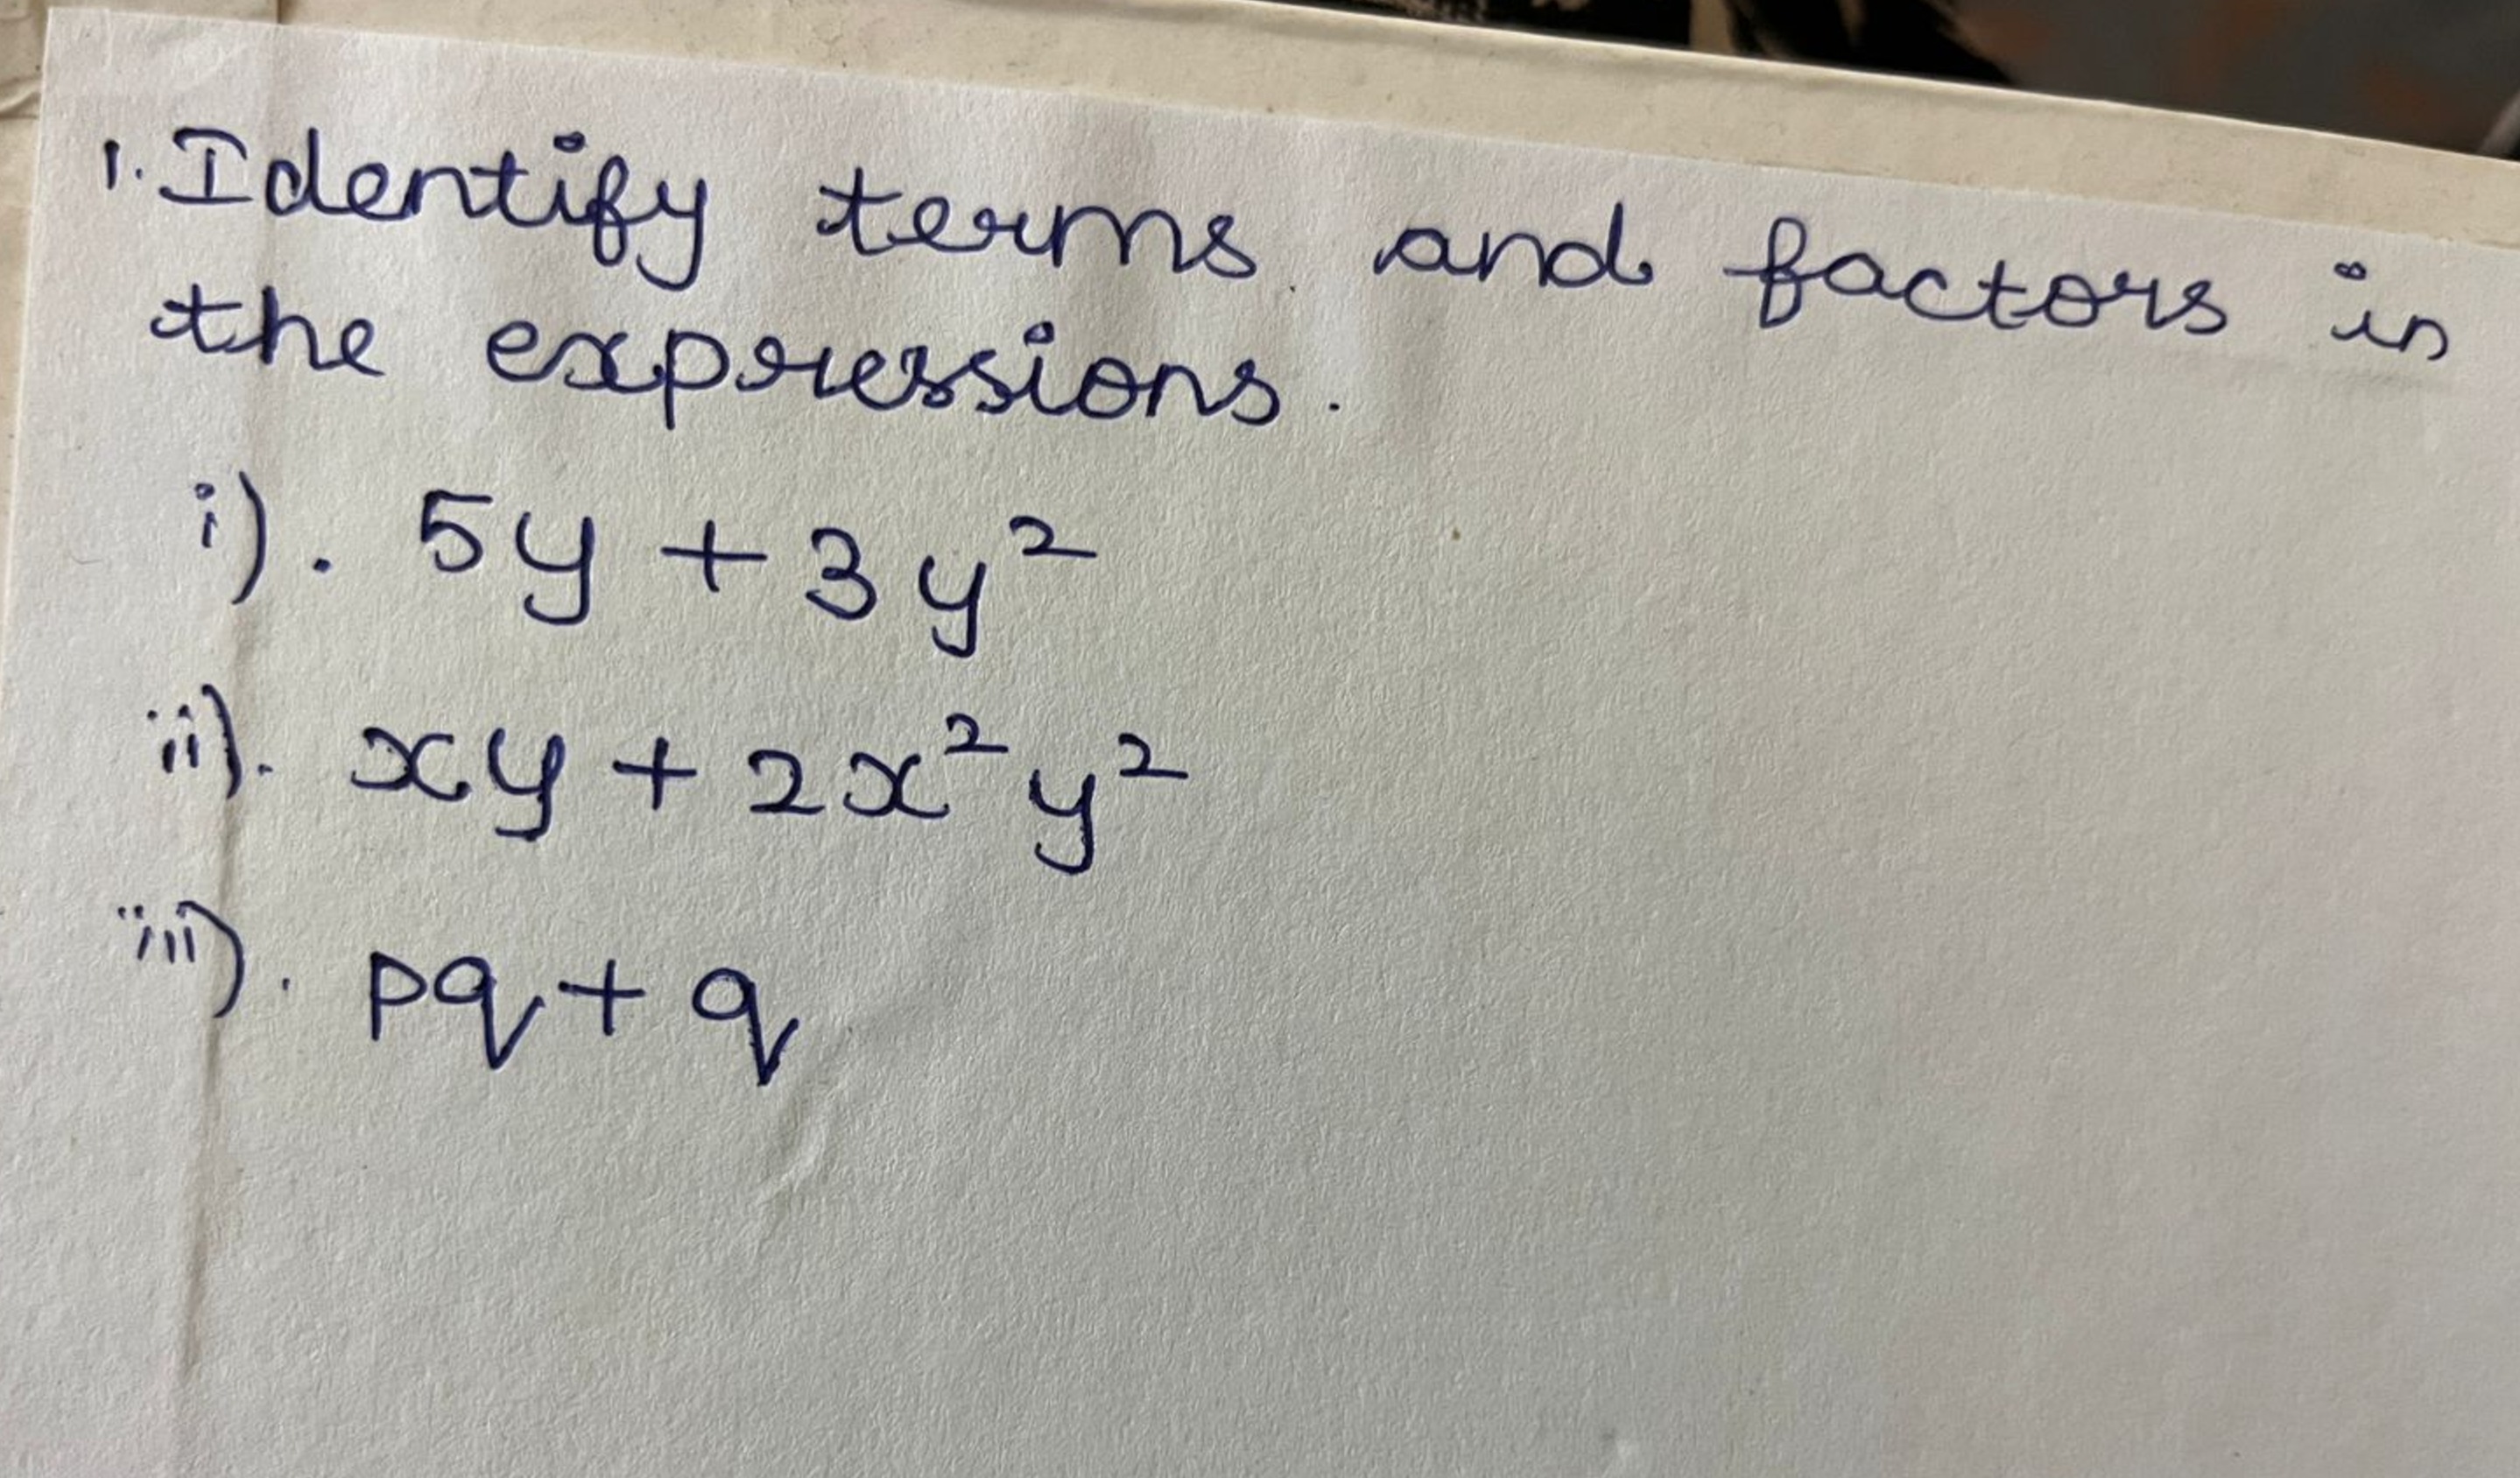 1. Identify terms and factors in
the expressions.
i). 5y + 3y²
ii). xy + 2x²y²
iii). pq + q